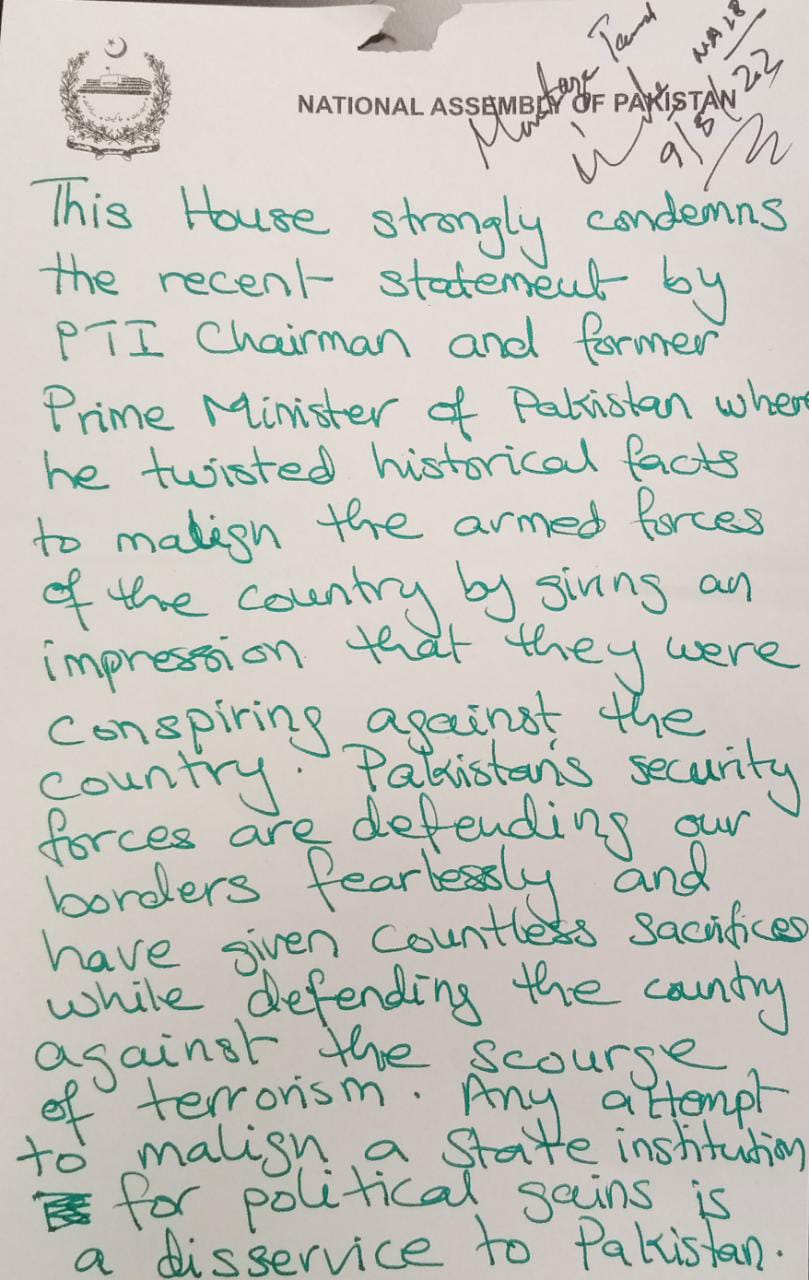 NATIONAL ASSEMBLY OF PAKISTAN
NA 28
9/8/22
This House strongly condemns
the recent statement by
PTI Chairman and former
Prime Minister of Pakistan where
he twisted historical facts
to malign the armed forces
of the country by giving an
impression that they were
conspiring against the
country. Pakistan's security
forces are defending our
borders fearlessly and
have given countless sacrifices
while defending the country
against the scourge
of terrorism. Any attempt
to malign a state institution
for political gains is
a disservice to Pakistan.